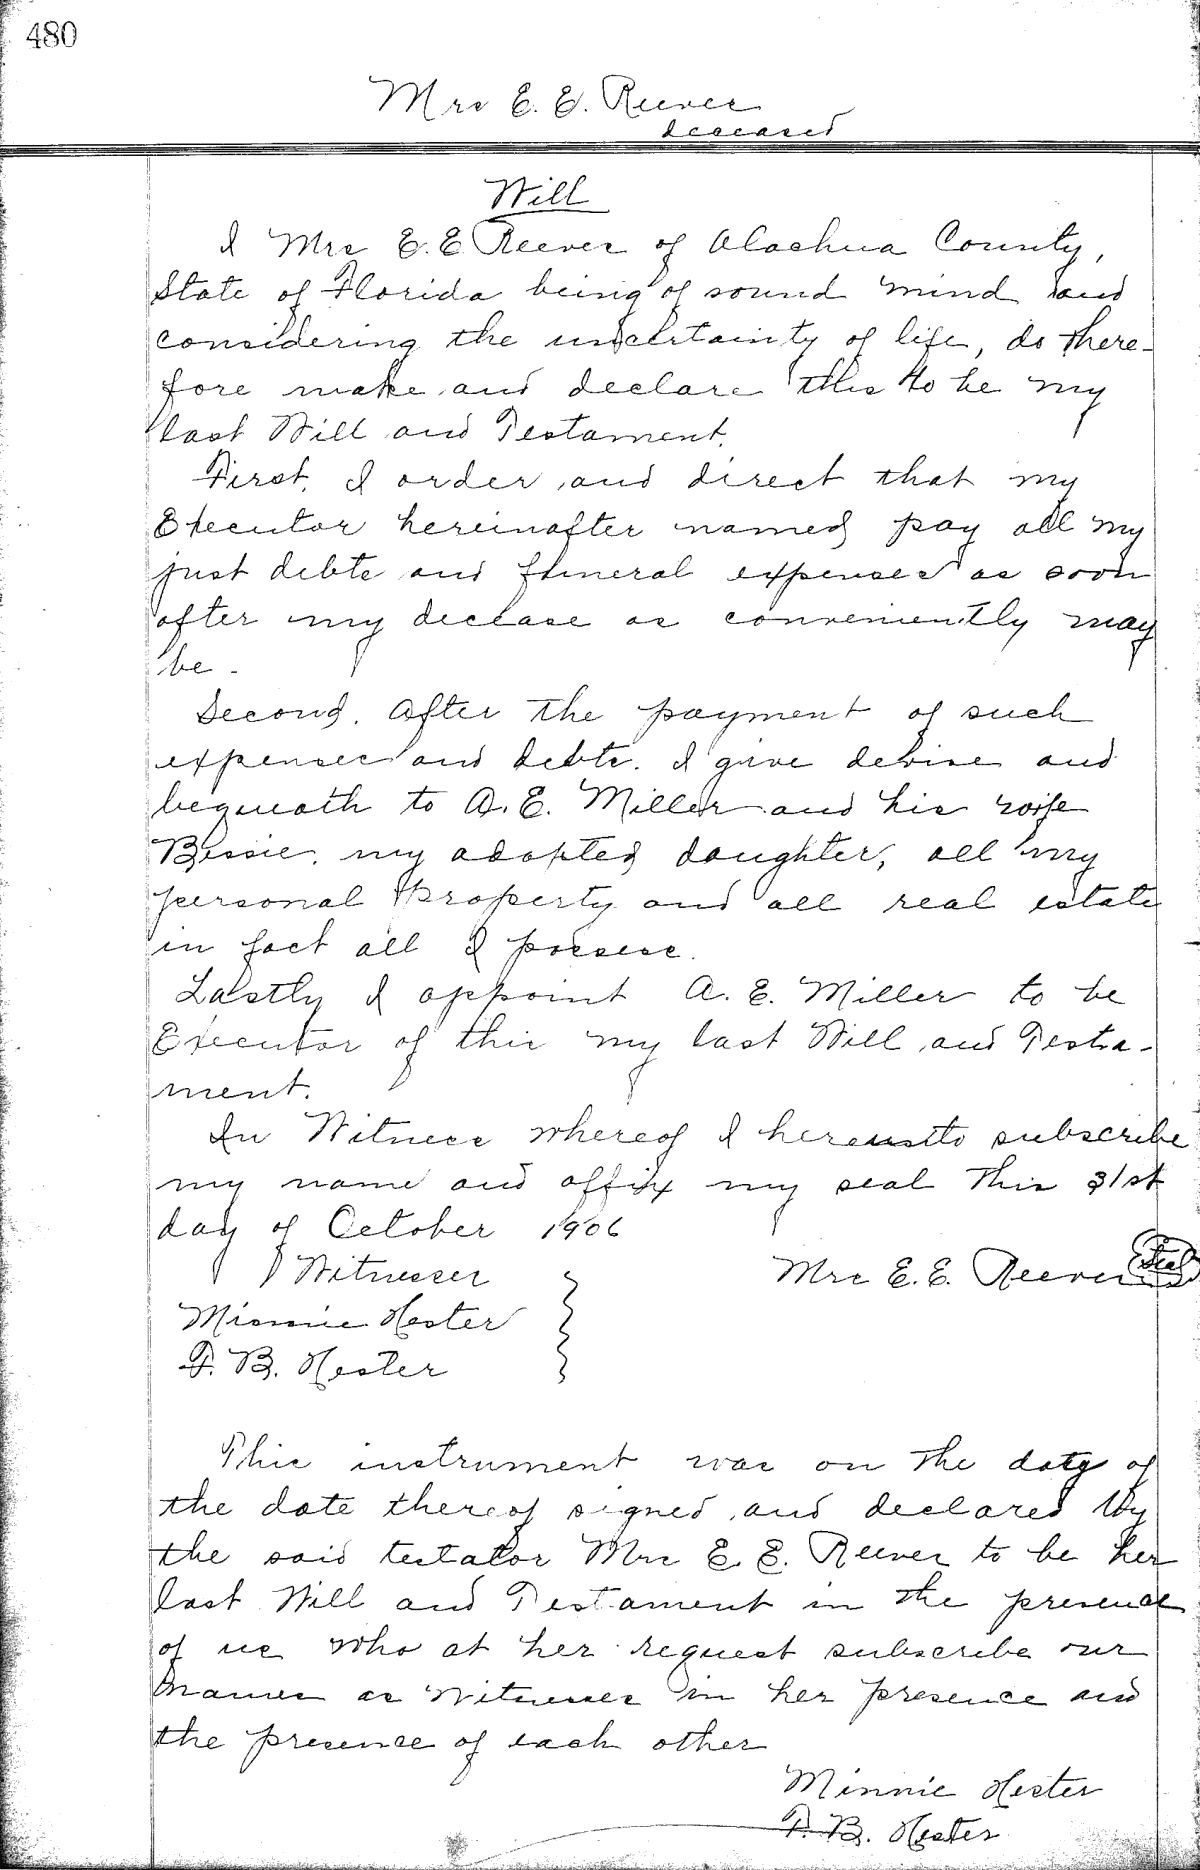 480
Mrs E. E. Reever
deceased
Will
I Mrs E. E Reever of Alachua County,
State of Florida being of sound mind and
considering the uncertainty of life, do there-
fore make and declare this to be my
last Will and Testament.
First, I order and direct that my
Executor hereinafter named pay all my
just debts and funeral expenses as soon
after my decease as conveniently may
be.
Second. After the payment of such
expenses and debts. I give devise and
bequeath to A. E. Miller and his wife
Bessie, my adopted daughter, all my
personal Property and all real estate
in fact all I possess.
Lastly I appoint A. E. Miller to be
Executor of this my last Will and Testa-
ment.
In Witness whereof I hereunto subscribe
my name and affix my seal this 31st
day of October 1906
Witnesses Mrs E. E. Reever Seal
Minnie Hester
F. B. Hester
This instrument was on the date of
the date thereof signed and declared by
the said testator Mrs E. E. Reever to be her
last Will and Testament in the presence
of us who at her request subscribe our
names as witnesses in her presence and
the presence of each other
Minnie Hester
F. B. Hester